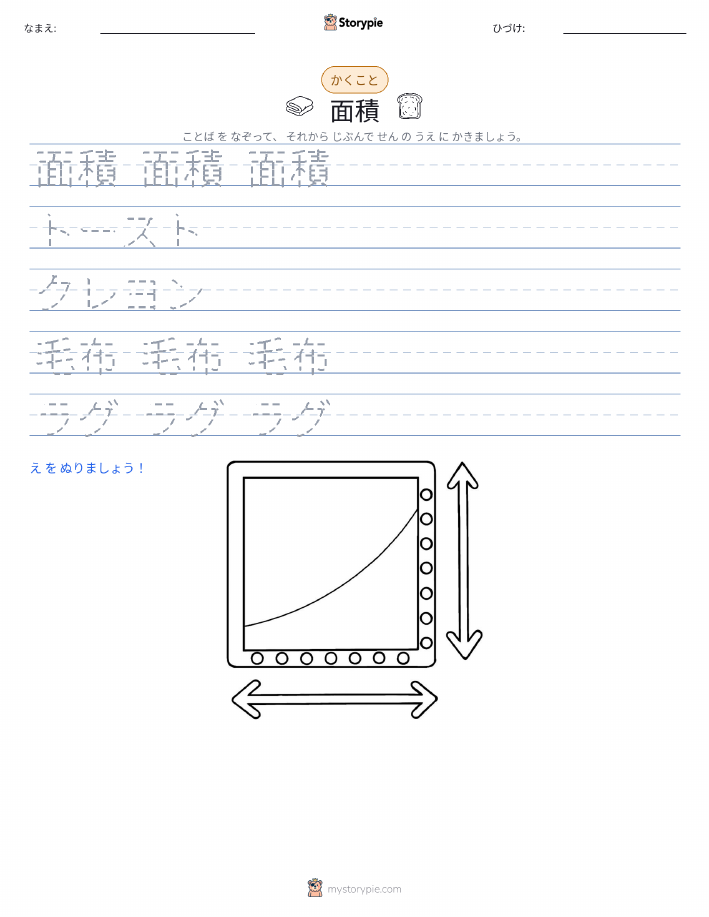 なまえ: Storypie ひづけ:
かくこと
面積
ことば を なぞって、 それから じぶんで せん の うえ に かきましょう。
面積 面積 面積
トースト
クレヨン
毛布 毛布 毛布
ラグ ラグ ラグ
え を ぬりましょう！
mystorypie.com